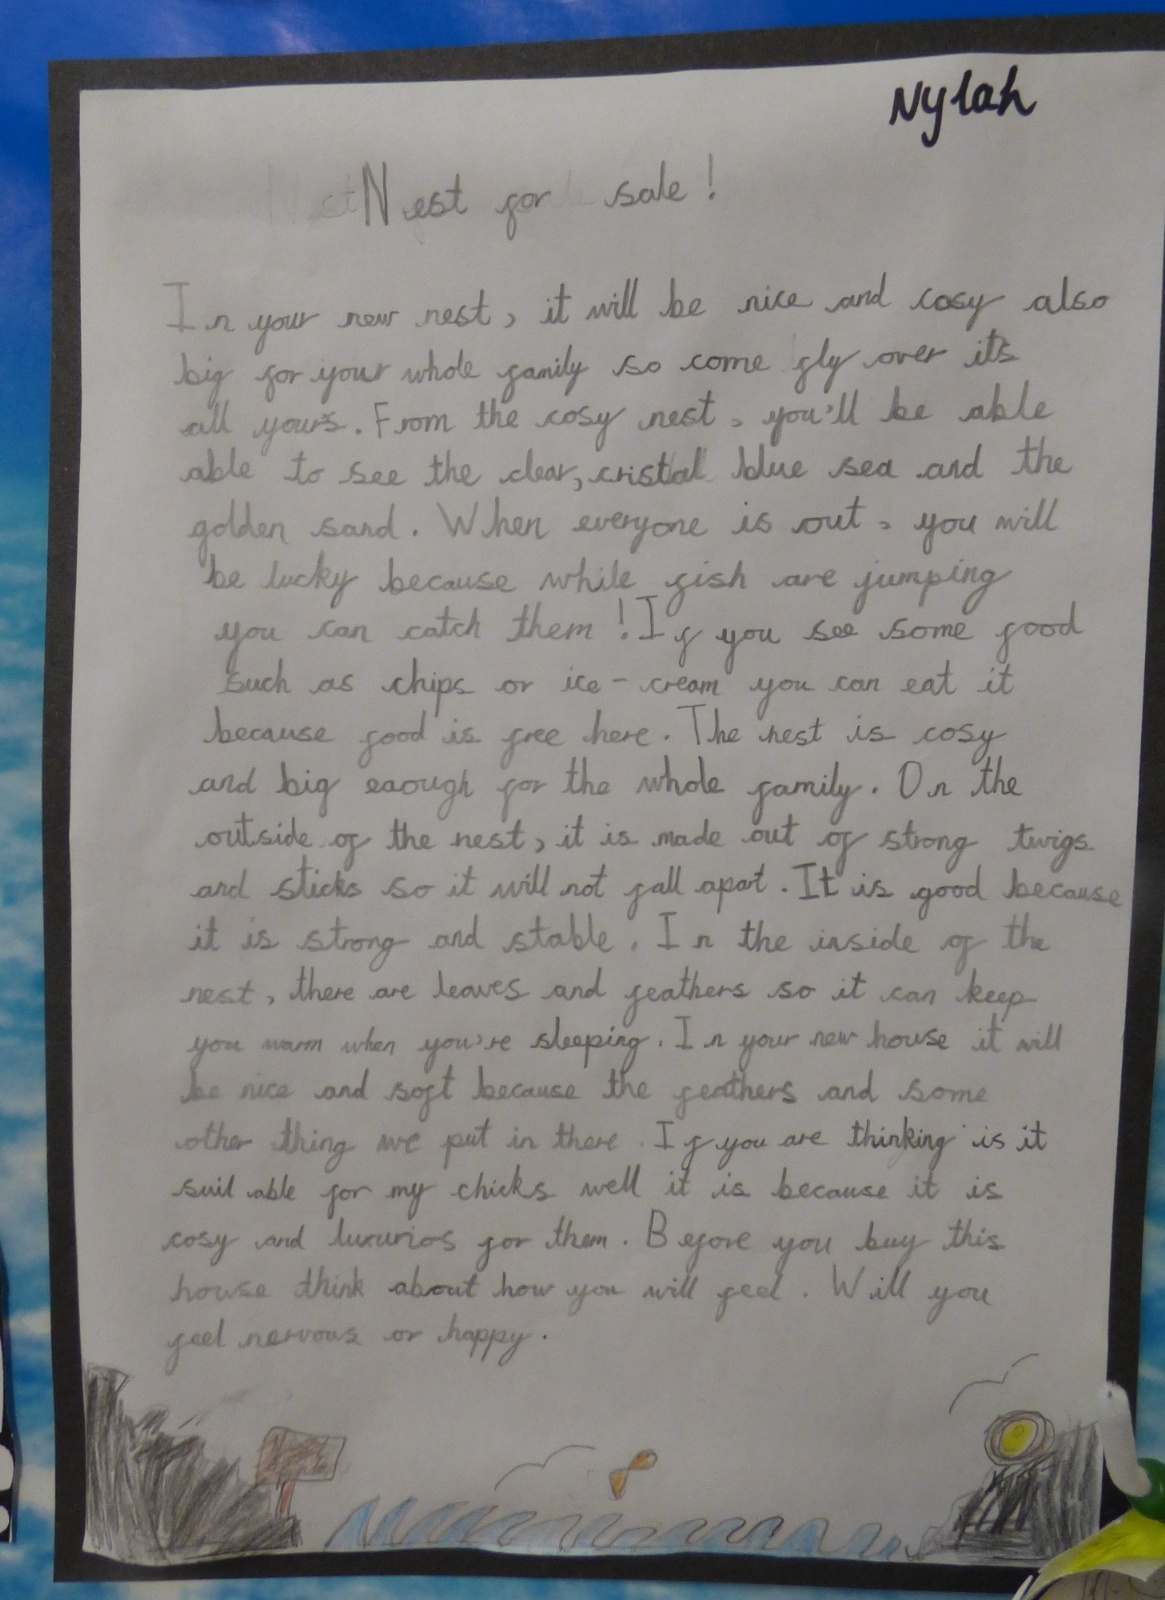 Nylah
Nest for sale!
In your new nest, it will be nice and cosy also
big for your whole family so come fly over it's
all yours. From the cosy nest, you'll be able
able to see the clear, cristal blue sea and the
golden sand. When everyone is out, you will
be lucky because while fish are jumping
you can catch them! If you see some food
such as chips or ice-cream you can eat it
because food is free here. The nest is cosy
and big eaough for the whole family. On the
outside of the nest, it is made out of strong twigs
and sticks so it will not fall apart. It is good because
it is strong and stable. In the inside of the
nest, there are leaves and feathers so it can keep
you warm when you're sleeping. In your new house it will
be nice and soft because the feathers and some
other thing we put in there. If you are thinking is it
suitable for my chicks well it is because it is
cosy and luxurios for them. Before you buy this
house think about how you will feel. Will you
feel nervous or happy.